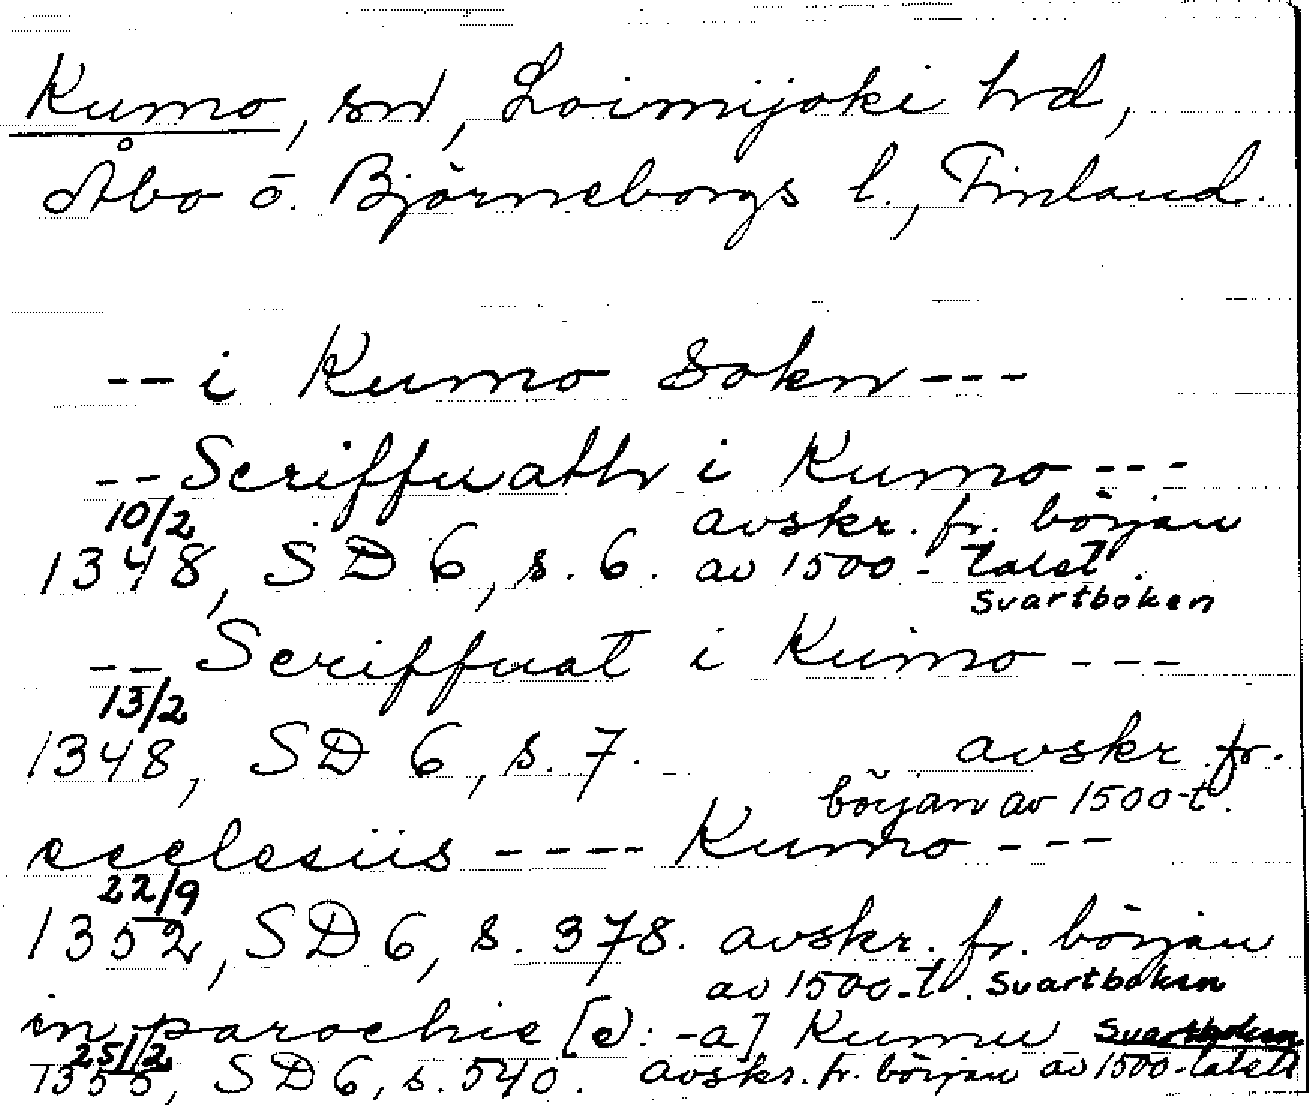 Kumo, sn, Loimijoki hd,
Åbo o. Björneborgs l., Finland.
-- i Kumo Sokn ---
-- Scriffwath i Kumo ---
10/2 avskr. fr. början
1348, SD 6, s. 6. av 1500-talet.
Svartboken
-- Scriffuat i Kumo ---
13/2
1348, SD 6, s. 7. avskr. fr.
början av 1500-t.
ecclesiis ---- Kumo ---
22/9
1352, SD 6, s. 378. avskr. fr. början
av 1500-t. Svartboken
in parochie [e): -a] Kumu Svartboken
25/2
1355, SD 6, s. 540. avskr. fr. början av 1500-talet